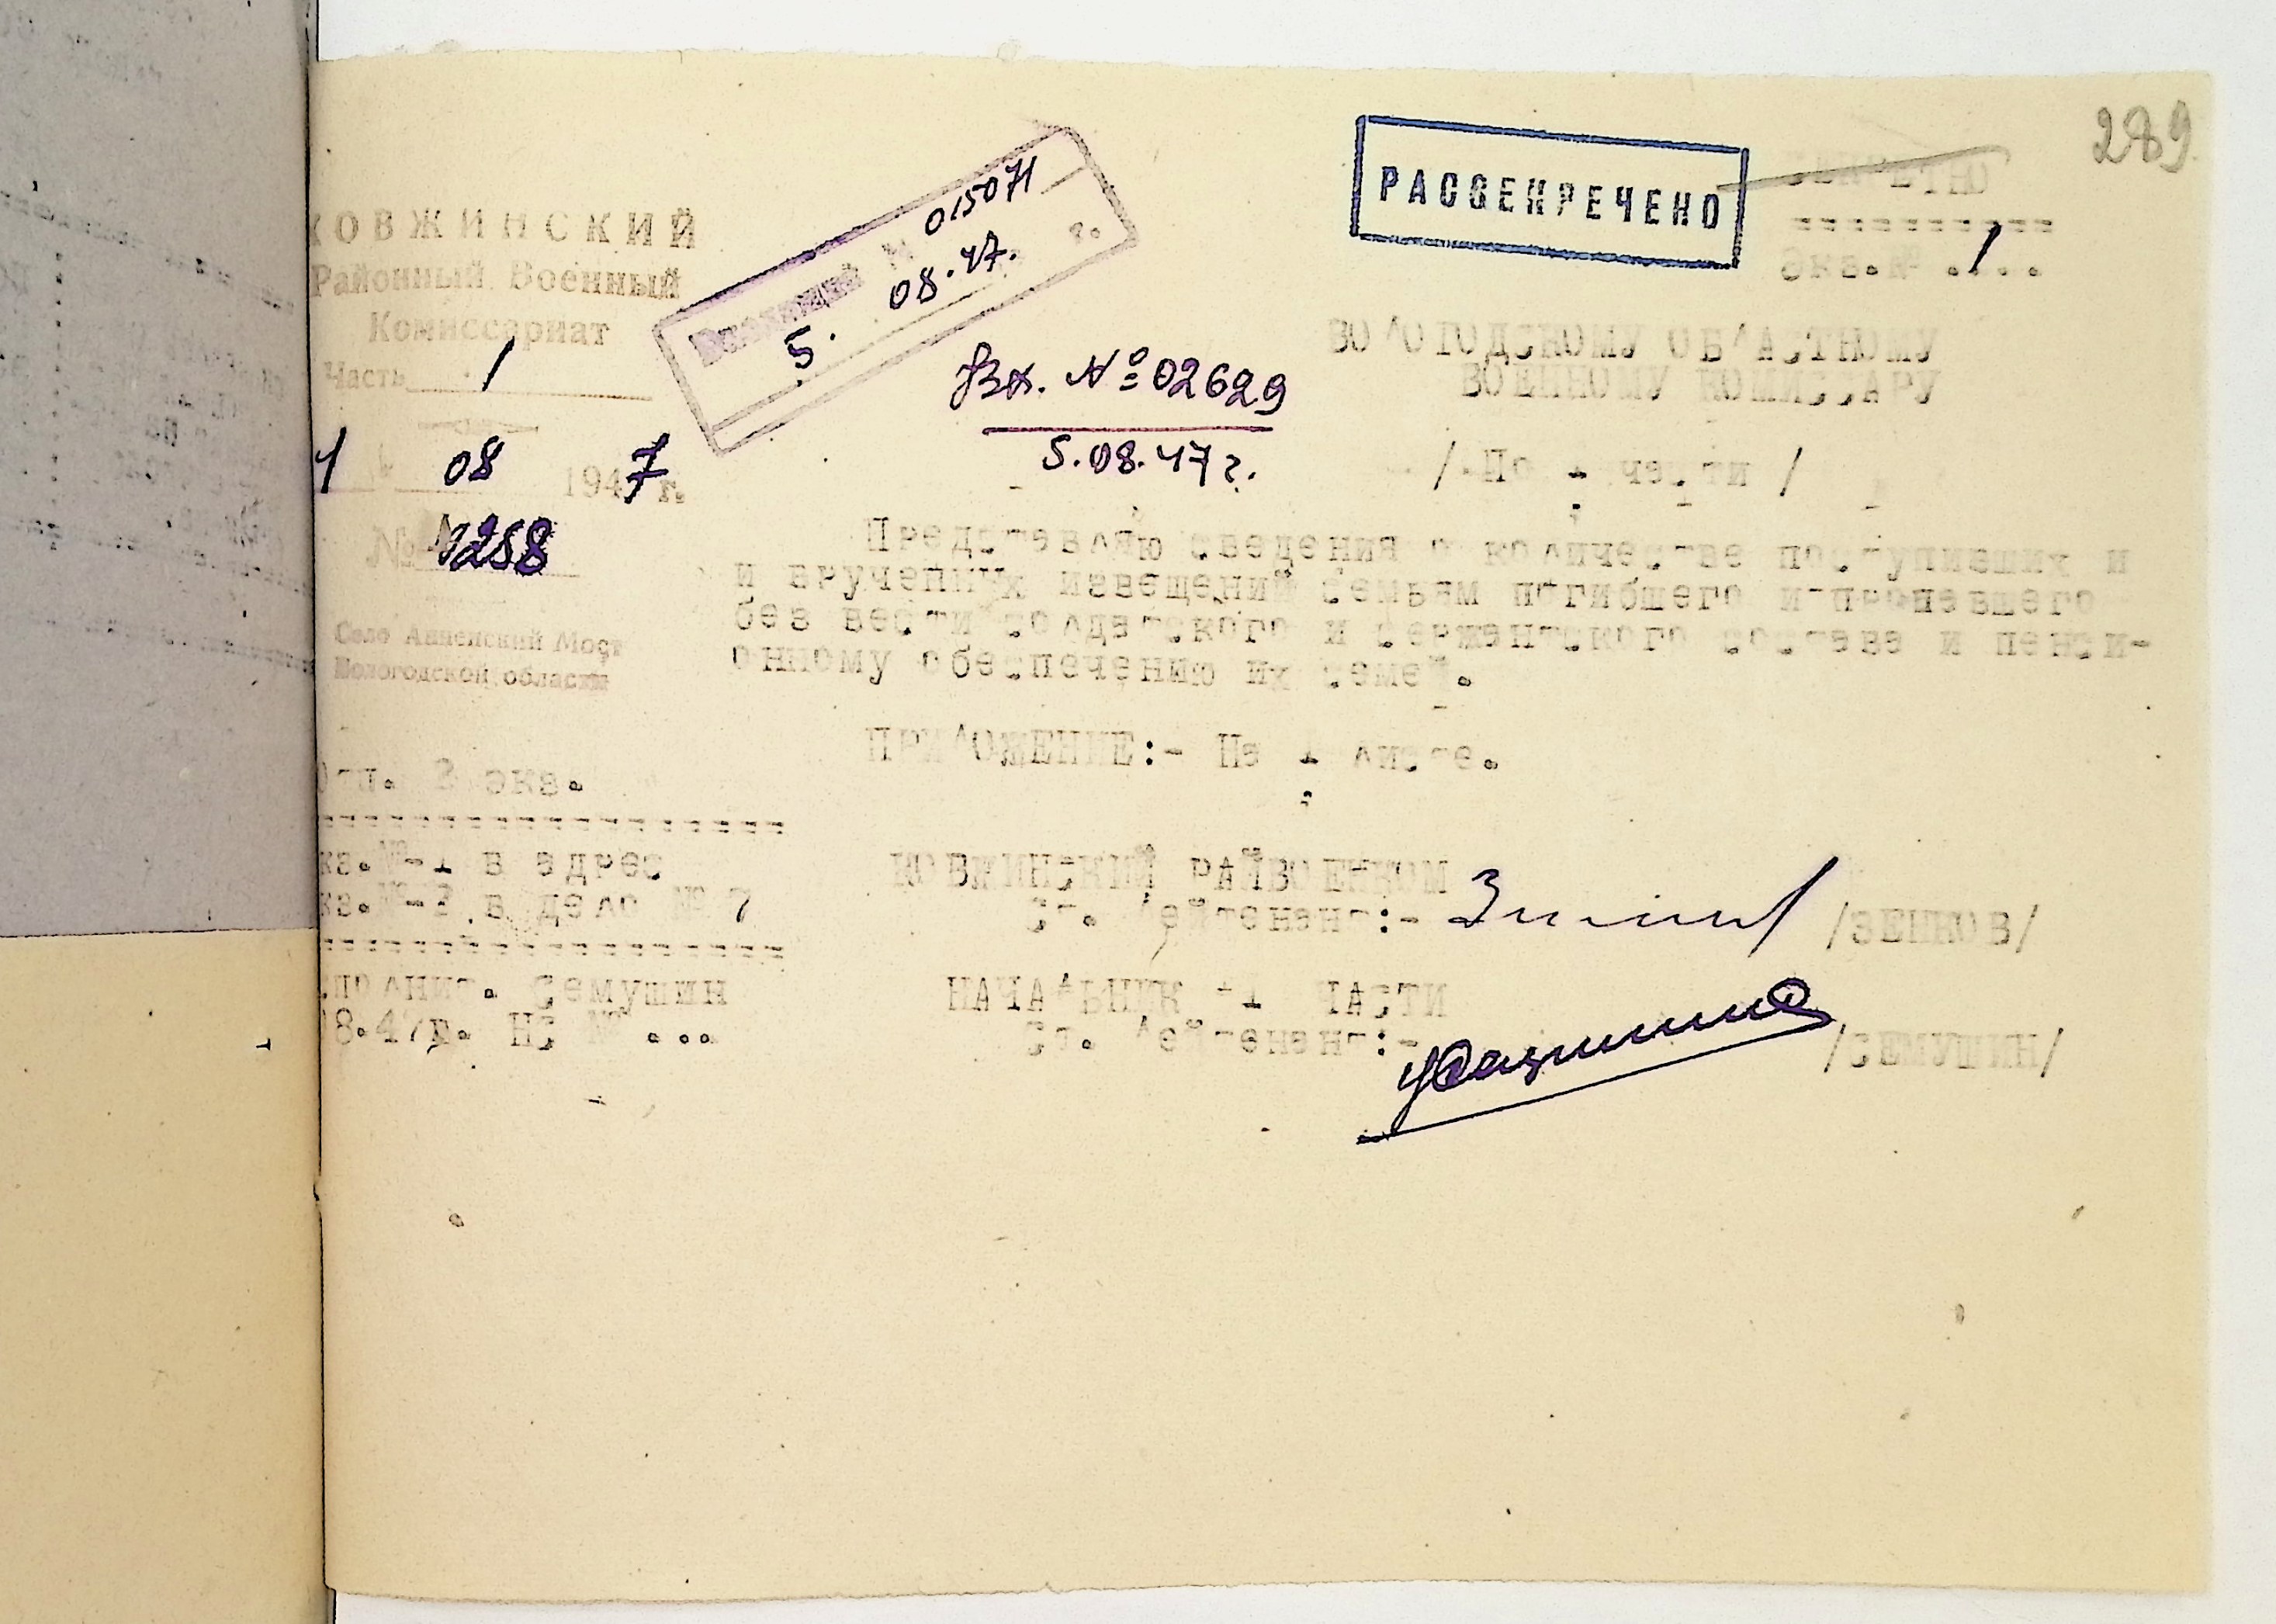 289
РАССЕКРЕЧЕНО
СЕКРЕТНО
Экз.№ .1...
КОВЖИНСКИЙ
Районный Военный
Комиссариат
Часть 1
08 1947 г.
Село Анненский Мост
Вологодской области
№ 015071
5. 08.47. г.
Вх. № 02629
5.08.47 г.
ВОЛОГОДСКОМУ ОБЛАСТНОМУ
ВОЕННОМУ КОМИССАРУ
/ По 1 части /
Представляю сведения о количестве поступивших и
и врученных извещений семьям погибшего и пропавшего
без вести солдатского и сержантского состава и пенси-
онному обеспечению их семей.
ПРИЛОЖЕНИЕ:- На 1 листе.
Отп. 2 экз.
кз.№-1 в адрес
кз.№-2 в дело № 7
сполнит. Семушин
8.47г. Нс № ...
КОВЖИНСКИЙ РАЙВОЕНКОМ
Ст. Лейтенант:- /ЗЕНКОВ/
НАЧАЛЬНИК -1 ЧАСТИ
Ст. Лейтенант:- /СЕМУШИН/